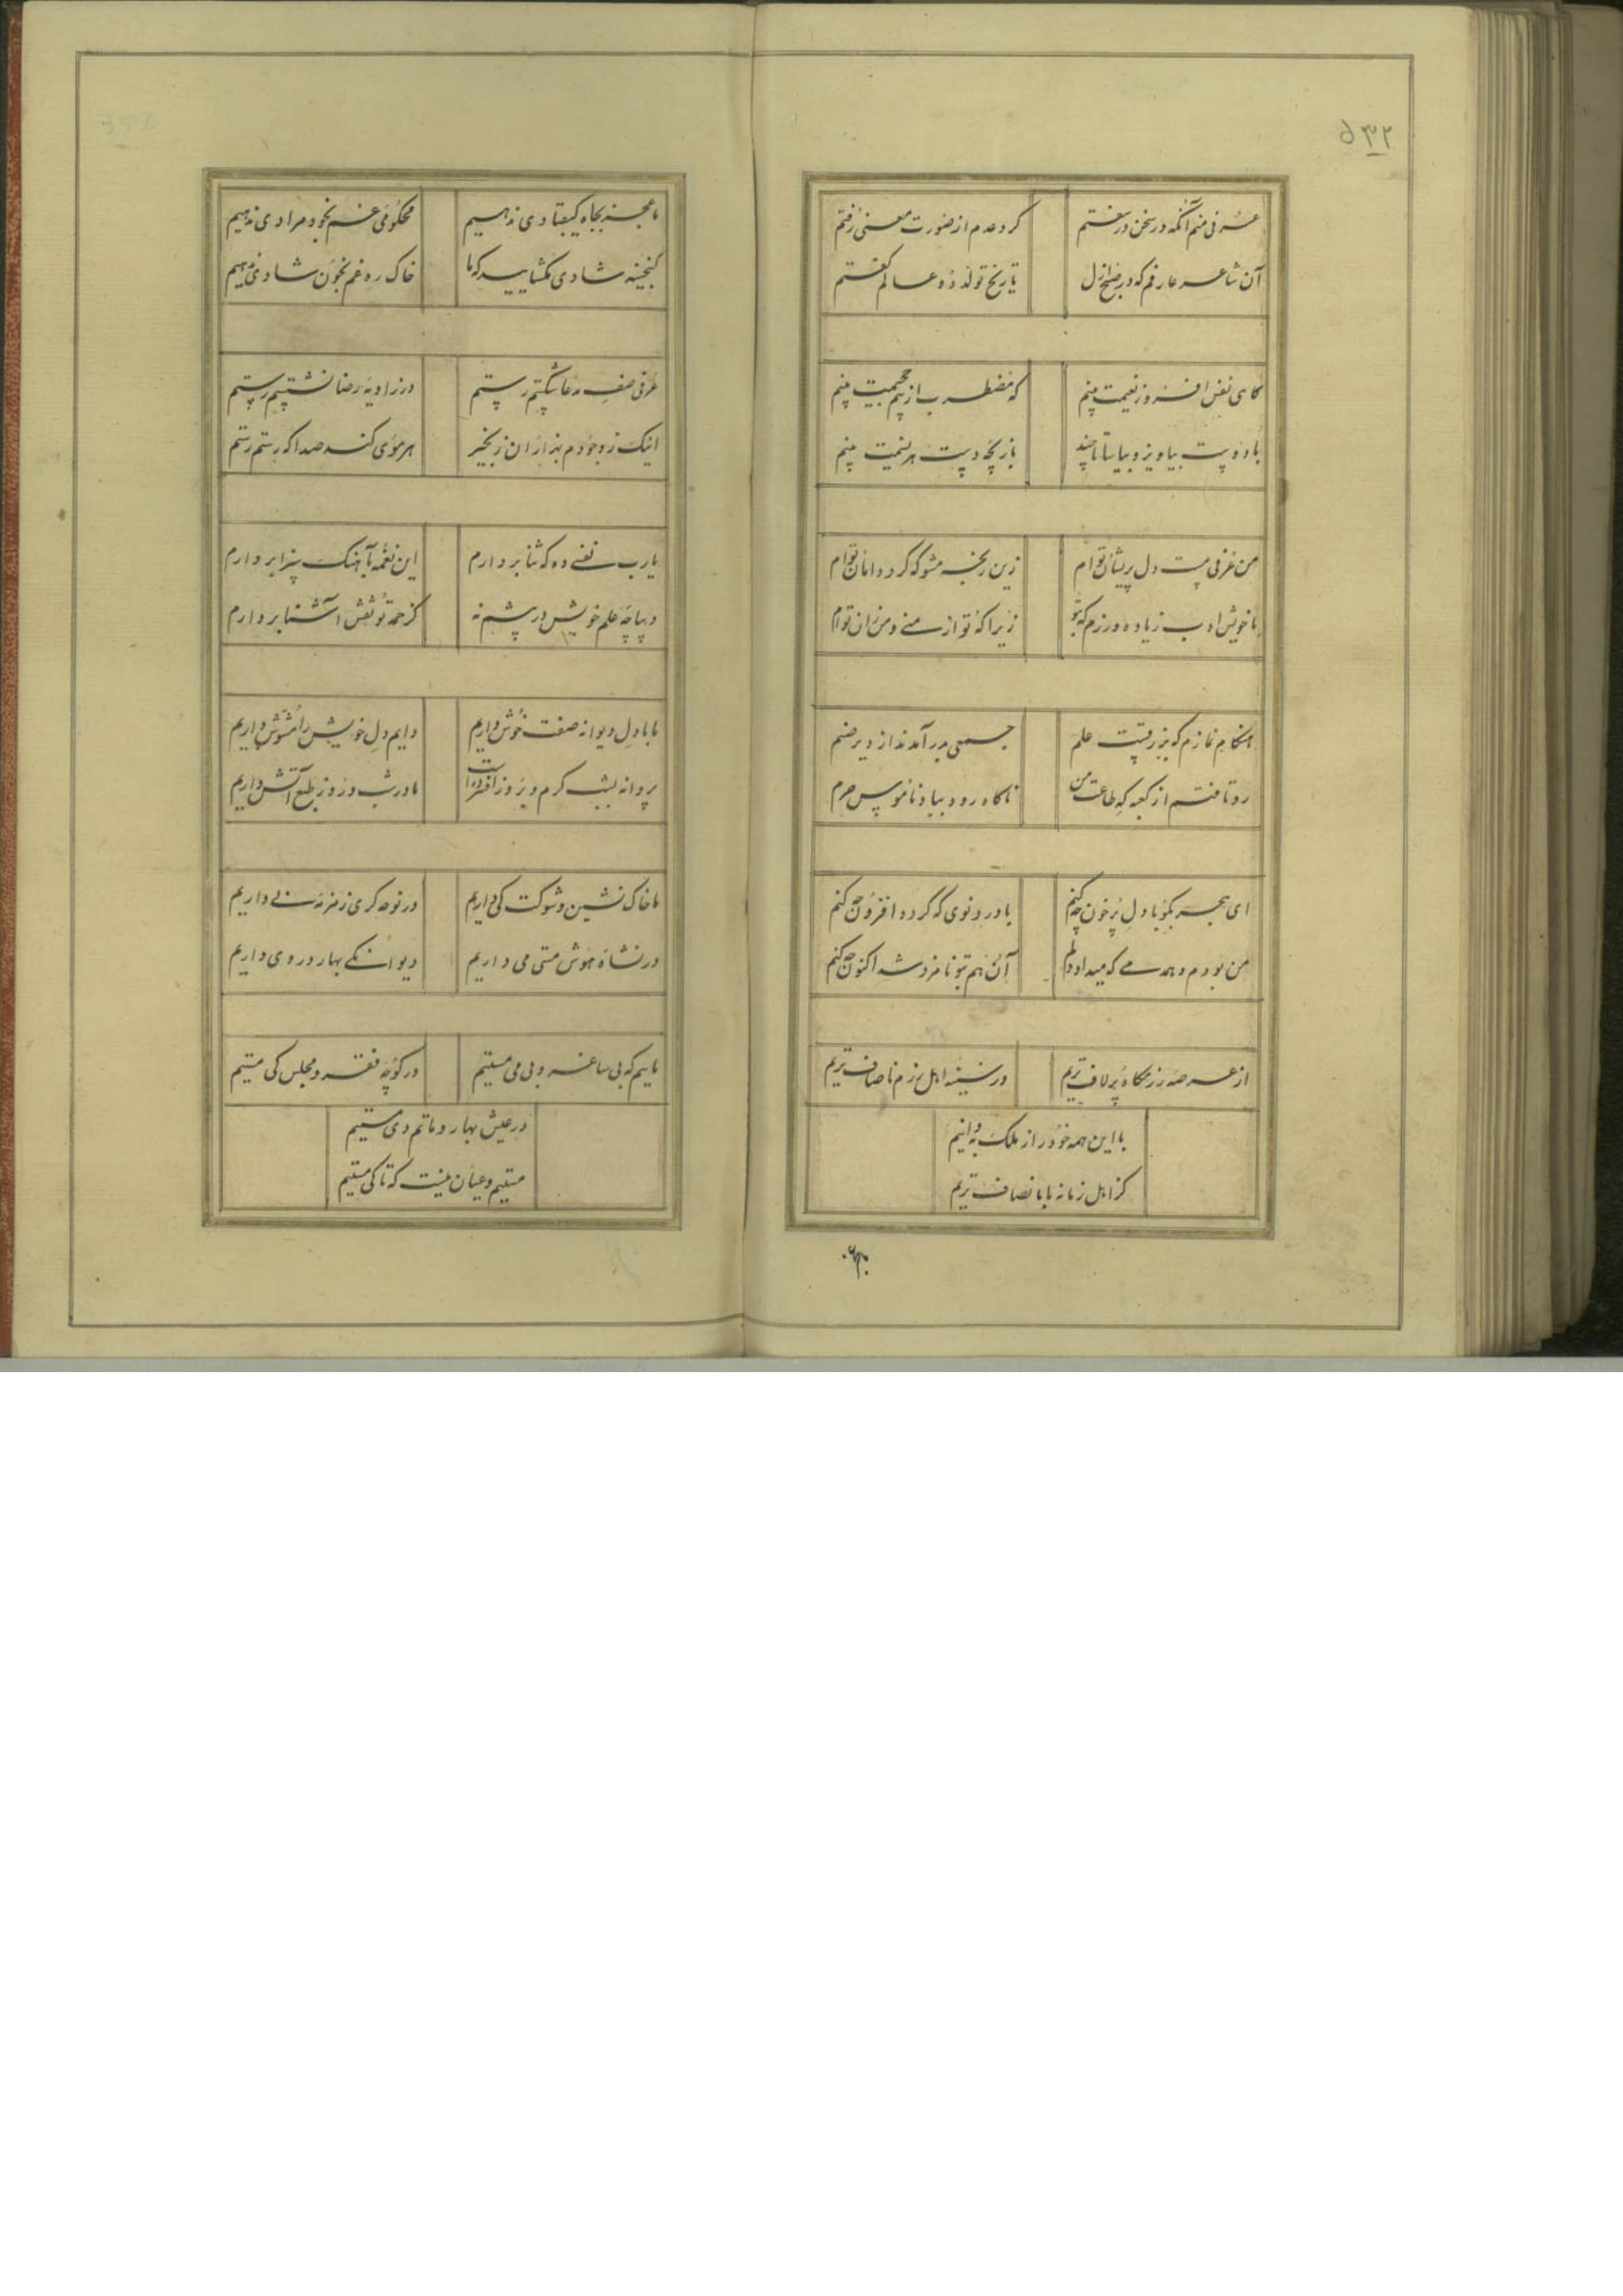 ۵۳۲
عرفی منم آنکه در سخن در سفتم
کرد عدم از صورت معنی رفتم
آن شاعر عارفم که در صبح ازل
تاریخ تولد دو عالم گفتم
کاهی نفس افروز نعیمت بینم
که مضطرب از بیم جحیمت بینم
باد دو بیا تا چند
بازیچه دست هر نسیمت بینم
من عرفی مست دل پریشان توام
زین رنجه مشو که کرد دامان توام
با خویش ادب زیاده ورزم که بتو
زیرا که تو از منی و من زان توام
هنکام نمازم که بزد علم
جمعی بدر آمدند از دیر صنم
رو تافتم از کعبه که طاعت من
ناکاه رود بباد ناموس حرم
ای هجر بکو با دل پرخون چه کنم
با درد نوی که کردد افزون چه کنم
من بودم و همدمی که میداد دلم
آن هم بتو نامزد شد اکنون چه کنم
از عرصه رزمکاه پرلاف تریم
در اهل بزم ناصاف تریم
با این همه خود را از ملک به دانیم
کز اهل زمانه با انصاف تریم
ما عجز بجاه کیقبادی ندهیم
محکومی غم بخود مرادی ندهیم
کنجینه شادی مکشایید که ما
خاک ره غم بخون شادی ندهیم
عرفی صف مدعا شکستم رستم
در زاویه رضا نشستم رستم
اینک ز وجودم هزاران زنجیر
هر موی کند صدا که رستم رستم
یارب نفسی ده که ثنا بردارم
این نغمه بآهنک سزا بردارم
دیباچه علم خویش در پیشم نه
کز حمد تو نقش آشنا بردارم
ما با دل دیوانه صفت خوش داریم
دایم دل خویش را مشوش داریم
پروانه بشب کرم و بروز افسرده است
ما در شب و روز طبع آتش داریم
ما خاک نشین و شوکت کی داریم
در نوحه کری زمزمه نی داریم
در نشاه هوش مستی می داریم
دیوانکی بهار در دی داریم
ماییم که بی ساغر و بی می مستیم
در کوچه فقر و مجلس کی مستیم
در عیش بهار و ماتم دی مستیم
مستیم و عیان نیست که تا کی مستیم